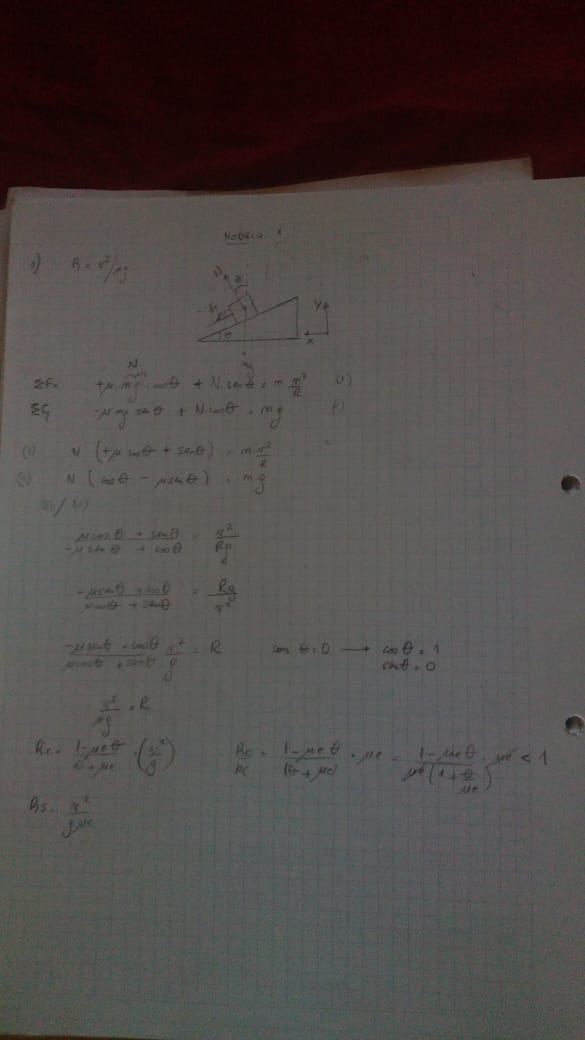 MODELO 1
1) R = v²/μg
N
y
x
θ
mg
N
ΣFx +μ mg cosθ + N senθ = m v²/R
ΣFy -μ mg senθ + N cosθ = mg
(I) N (+μ cosθ + senθ) = m v²/R
N (cosθ - μ senθ) = mg
(μcosθ + senθ)/(-μsenθ + cosθ) = v²/Rg
(-μsenθ + cosθ)/(μcosθ + senθ) = Rg/v²
(-μsenθ + cosθ)/(μcosθ + senθ) v²/g = R con θ=0 → cosθ = 1
senθ = 0
v²/μg = R
Rc = (1-μeθ)/(θ+μe) · (v²/g) Rc/Rs = (1-μeθ)/(θ+μe) · μe = (1-μeθ)/(μe(1+θ/μe)) · μe < 1
Rs = v²/gμe